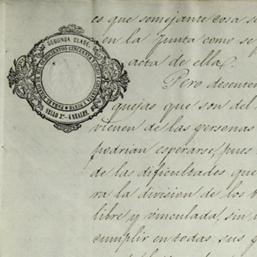 es que semejante cosa se
en la Junta como se
acta de ella.
Pero desenten
quejas que son del
vienen de las personas
podrian esperarse, pues
de las dificultades que
ra la division de los b
libre y vinculada, sin
cumplir en todas, sus
SEGUNDA CLASE.
SELLO 2º